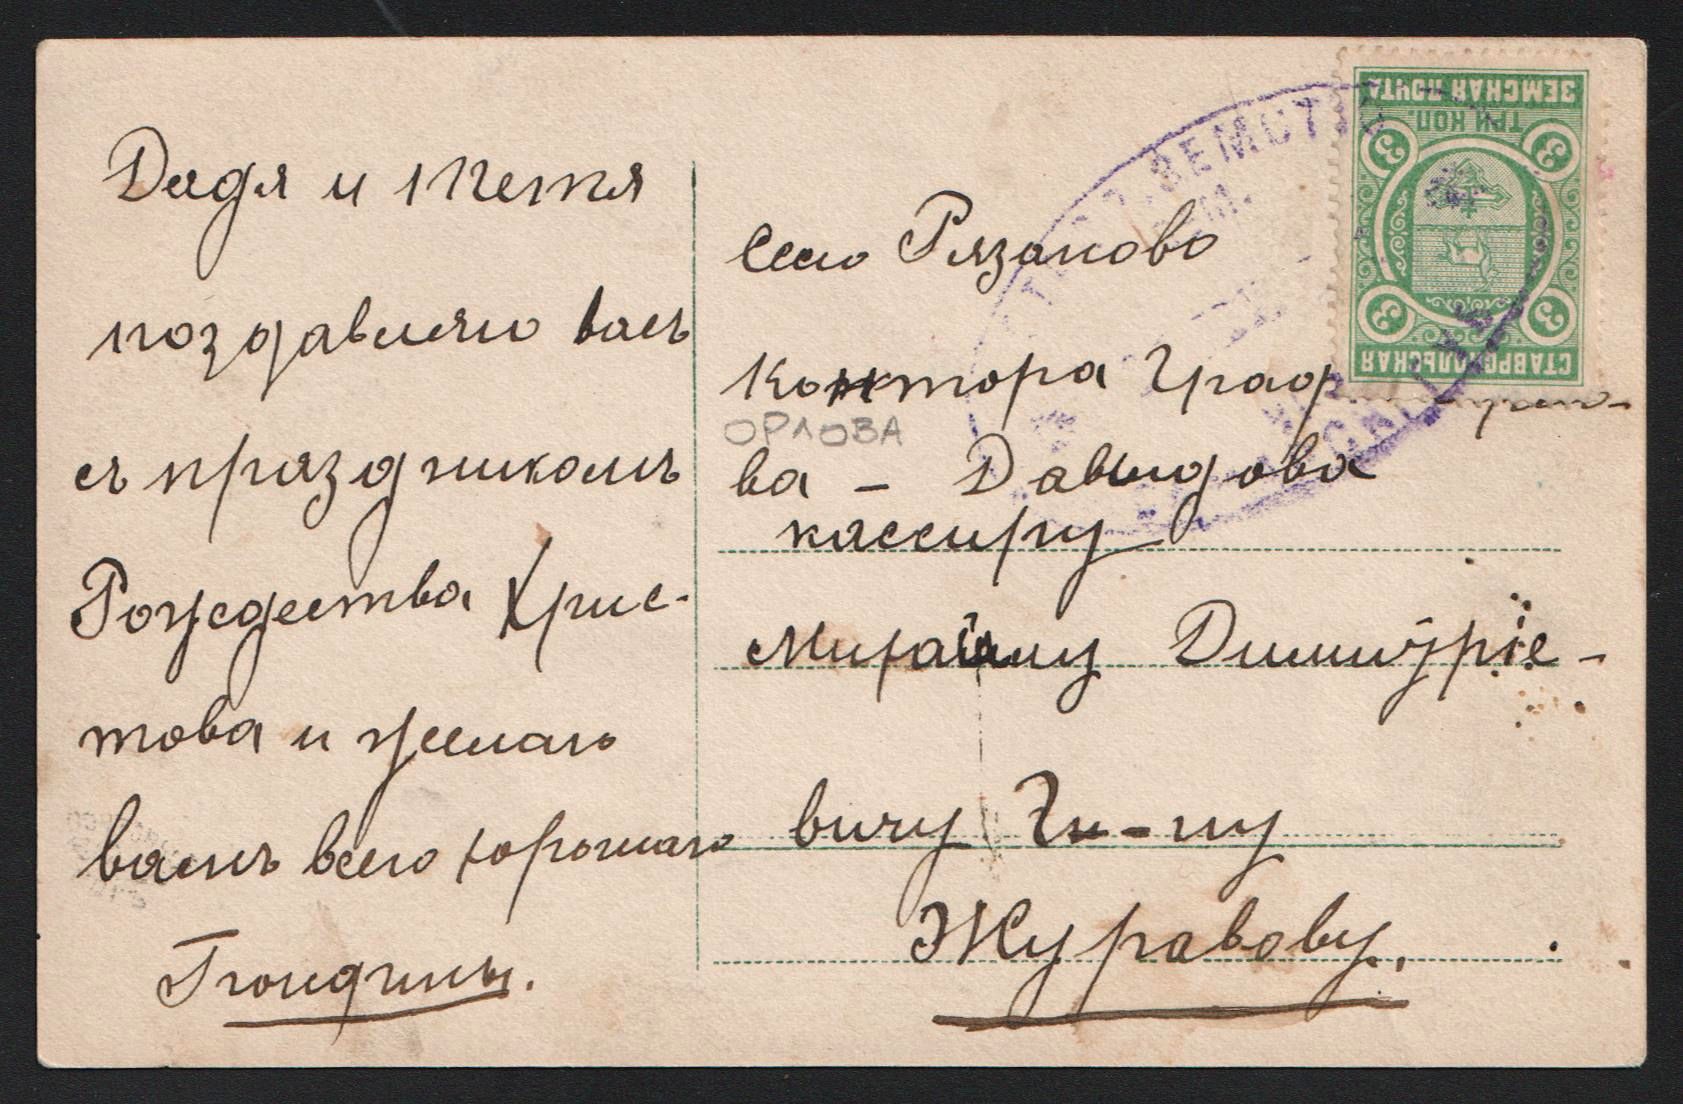 Дядя и тетя
поздавляю васъ
съ праздникомъ
Рождества Хрис-
това и желаю
вамъ всего хорошаго
село Рязаново
Контора Граф
ОРЛОВА
ва - Давыдова
кассиру
Михаилу Димитріе-
вичу Ги-ну
Журавову.
ЗЕМСКАЯ ПОЧТА
ТРИ КОП.
3 3
3 3
СТАВРОПОЛЬСКАЯ
ЗЕМСТ